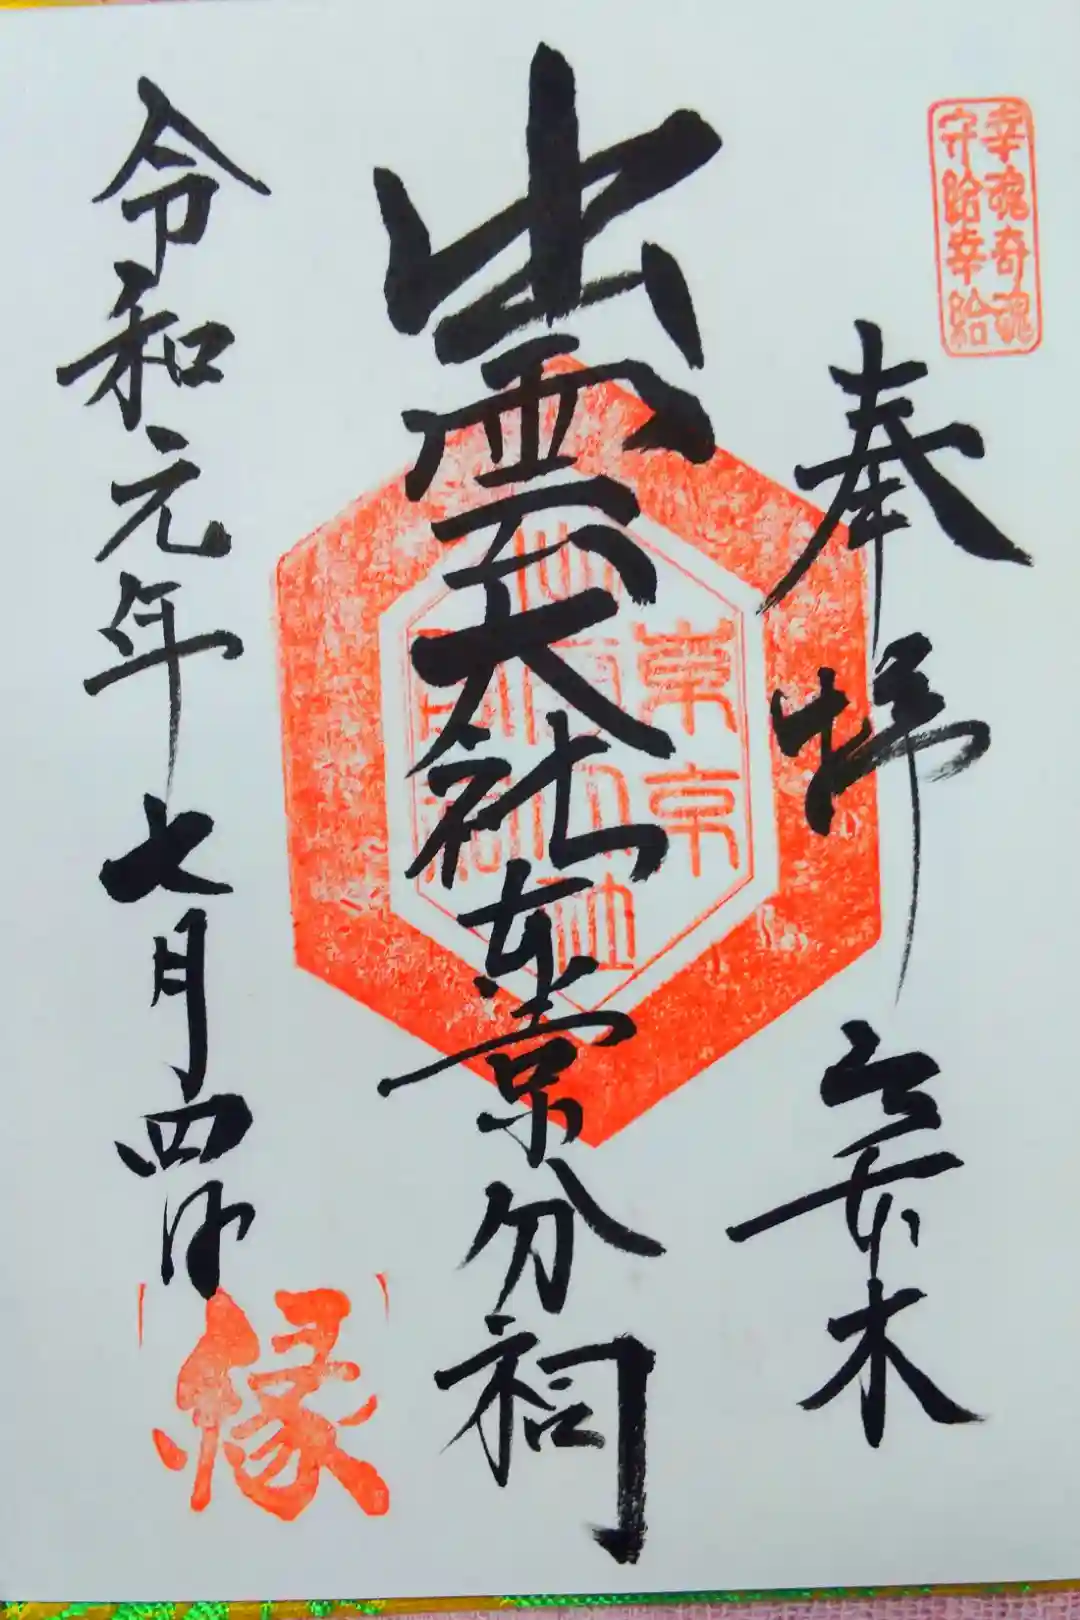 幸魂奇魂
守給幸給
奉拝 六本木
出雲大社東京分祠
東京
出雲大社
分祠
令和元年七月四日
縁